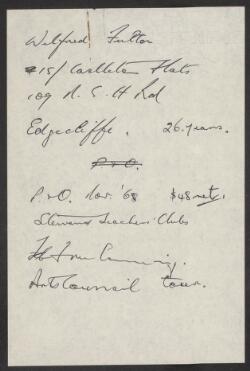 Wilfred Fulton
15/ Castleton Flats
109 N. S. H Rd
Edgecliffe. 26 years.
P&O.
P&O Nov. '68 $48 nett.
Steward Teachers Clubs
Arts Council tour.